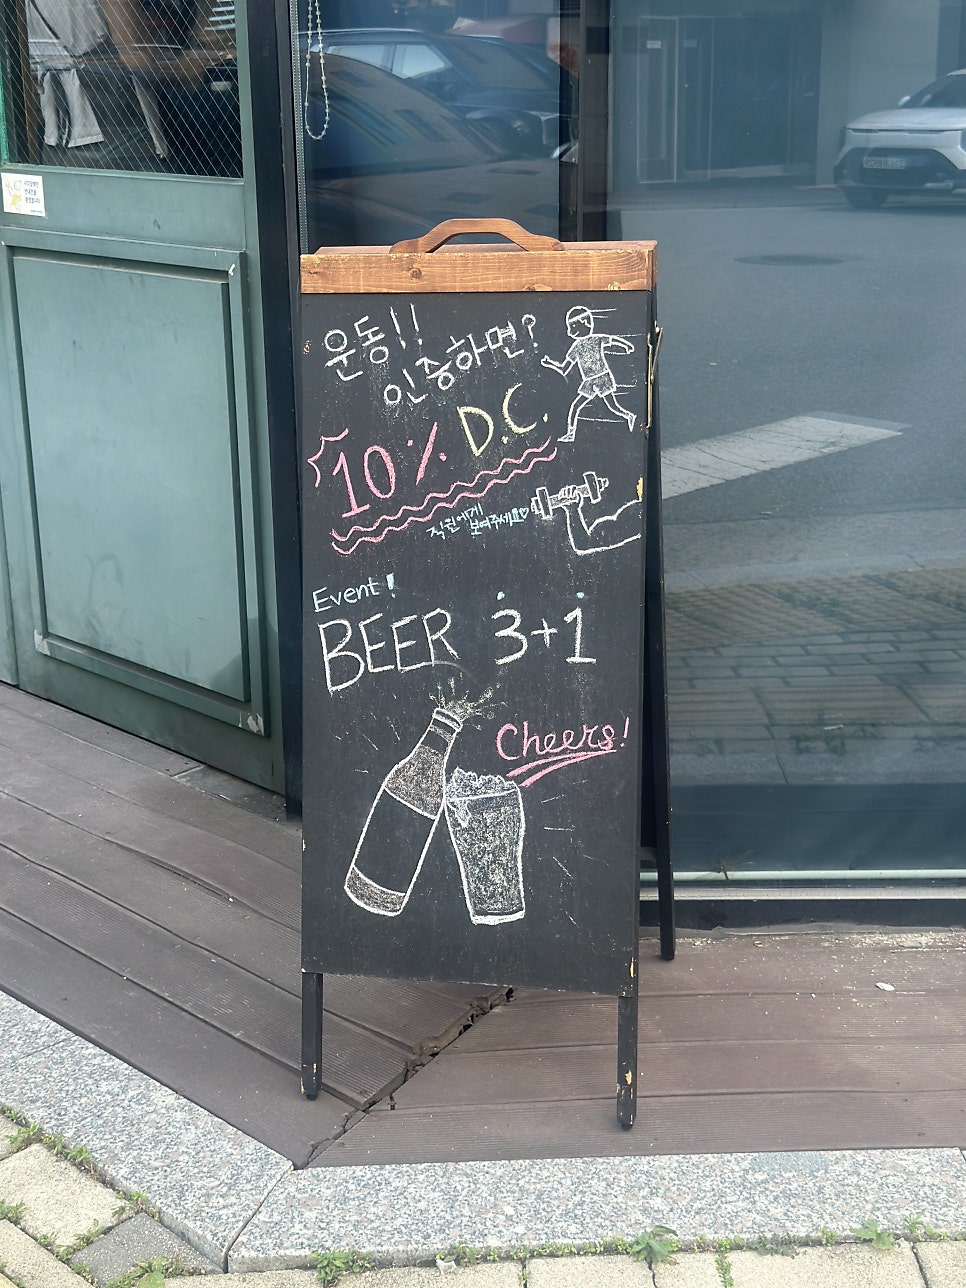 운동!!
인증하면?
10% D.C.
직원에게
보여주세요♡
Event!
BEER 3+1
Cheers!